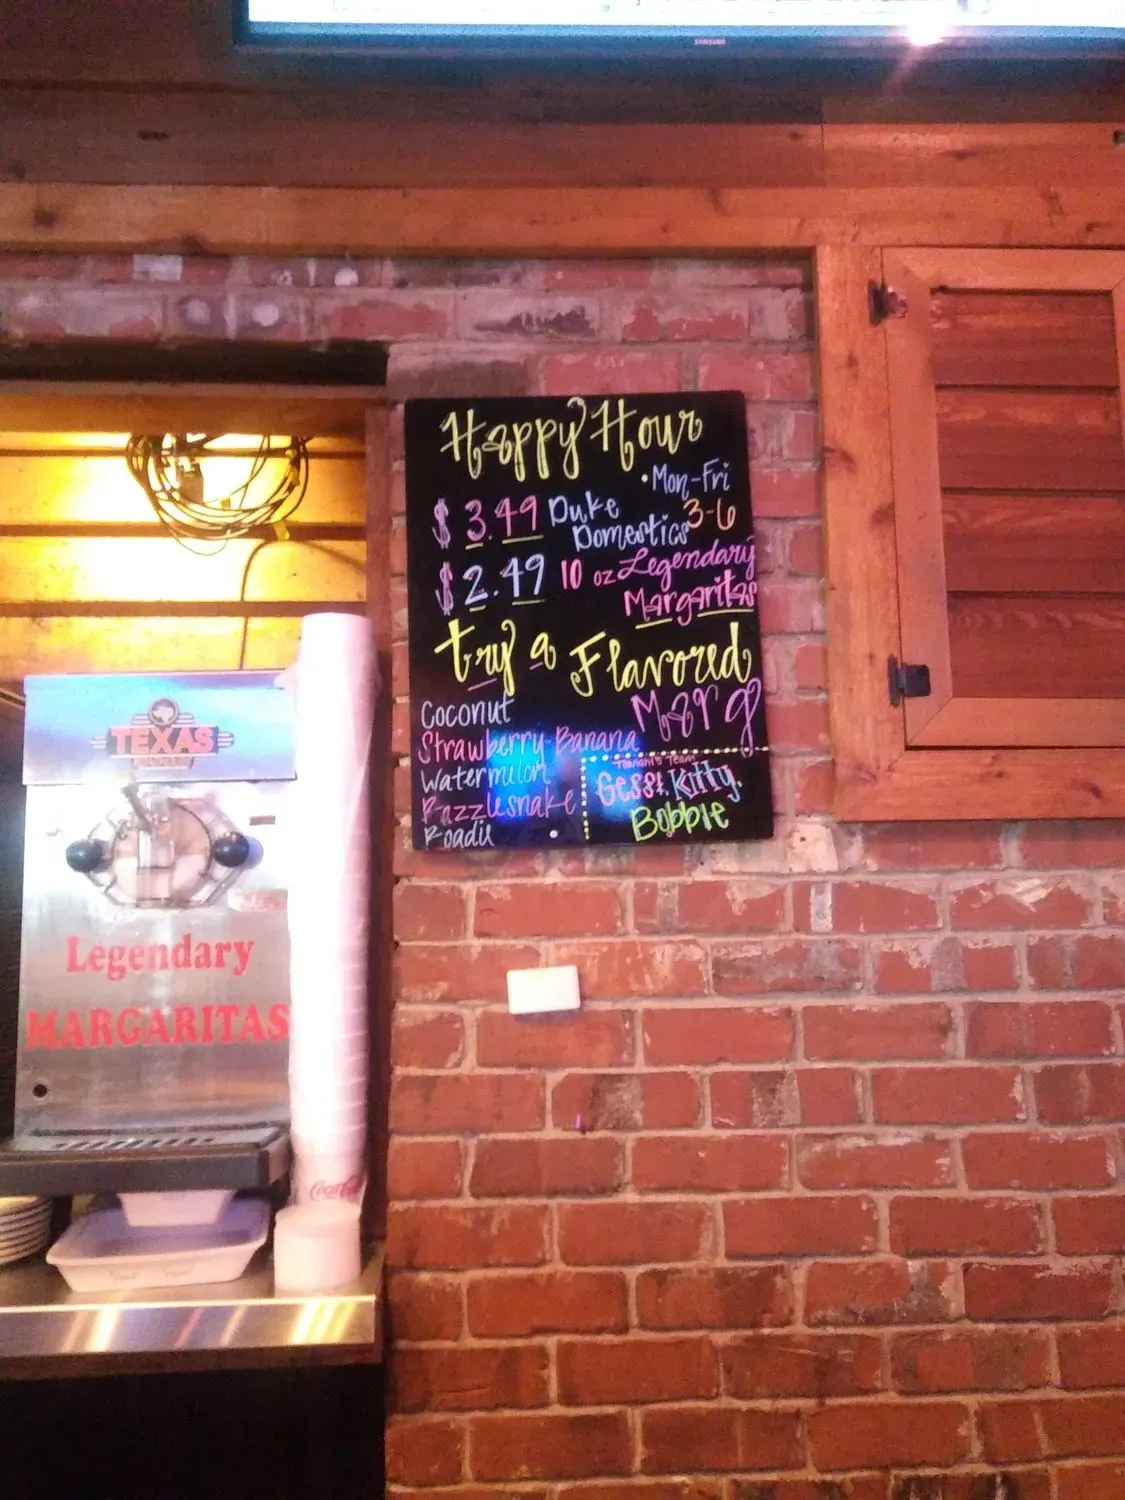 SAMSUNG
Happy Hour
• Mon-Fri
3-6
$3.49 Duke
Domestics
$2.49 10 oz Legendary
Margaritas
try a Flavored
Marg
Coconut
Strawberry Banana
Watermelon
Razzlesnake
Roadie
Tonight's Team
Gess, Kitty,
Bobbie
TEXAS
Legendary
MARGARITAS
Coca-Cola